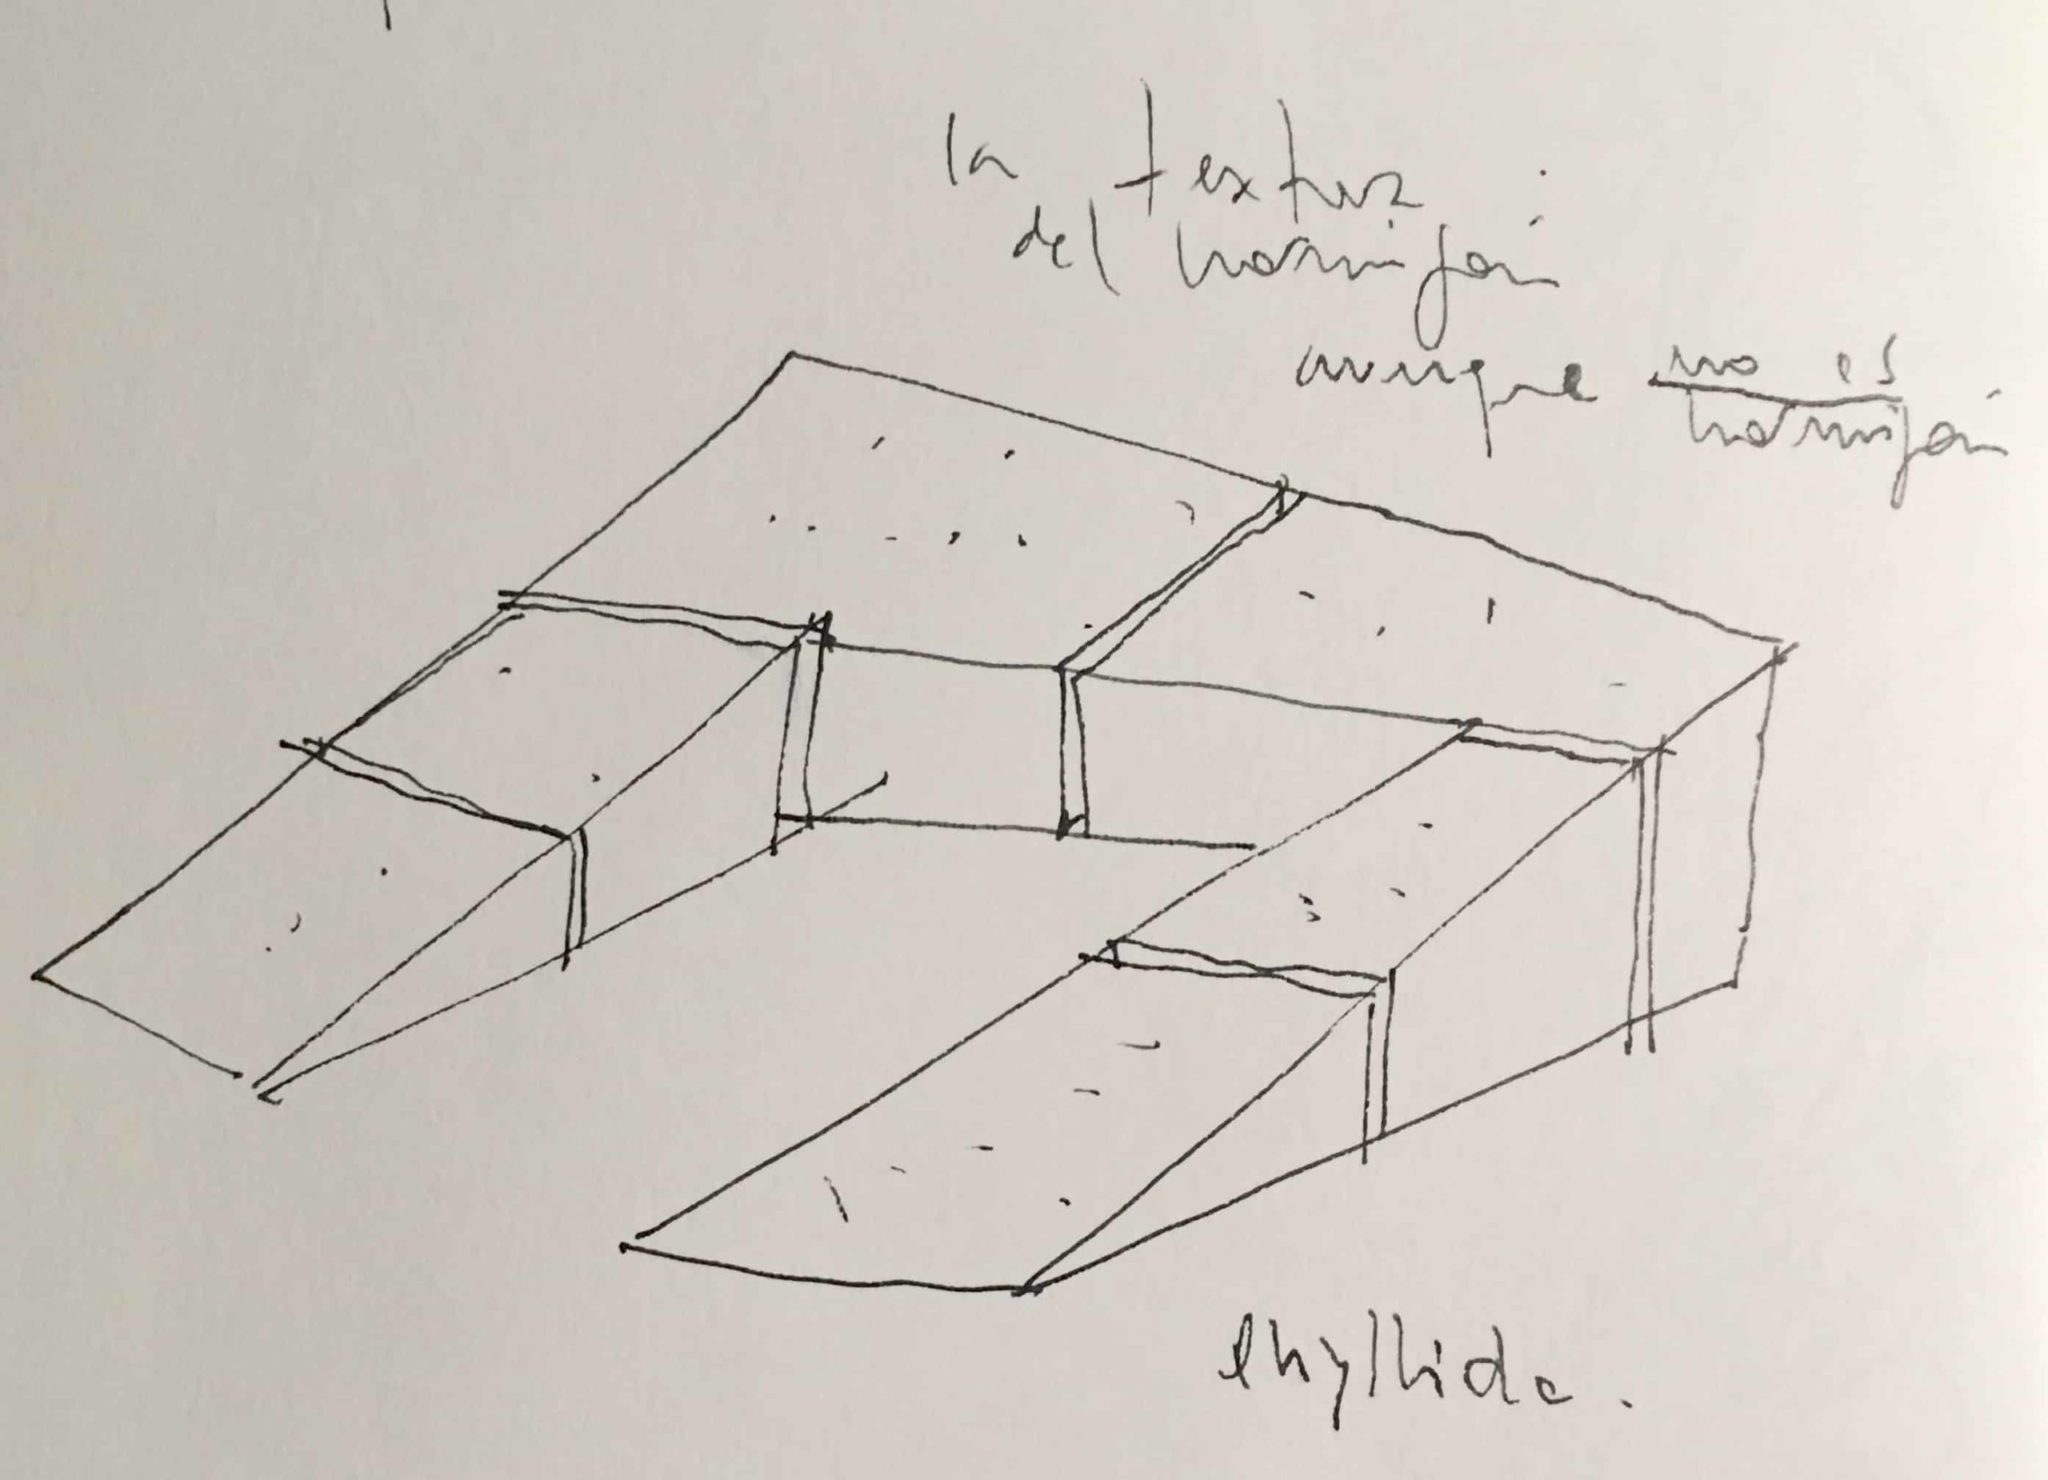 la textura
del hormigón
aunque no es
hormigón
Phyllida.